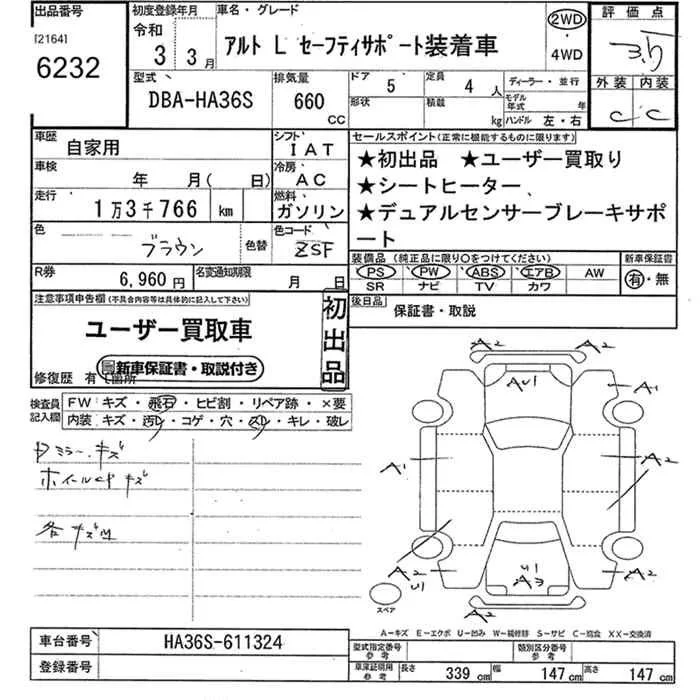 出品番号
[2164]
6232
初度登録年月 車名・グレード
令和
3 年 3 月
アルト L セーフティサポート装着車
2WD
・
4WD
評価点
3.5
外装 内装
C C
型式
DBA-HA36S
排気量
660
CC
ドア
5
定員
4 人
形状
積載
kg
ディーラー・並行
モデル年式 年
ハンドル 左・右
車歴
自家用
シフト
I A T
車検
年 月( 日)
冷房
A C
走行
1万3千766 km
燃料
ガソリン
色
ブラウン
色替
色コード
ZSF
R券
6,960 円
名変通知期限
月 日
セールスポイント(正常に機能するものに限ります)
★初出品 ★ユーザー買取り
★シートヒーター
★デュアルセンサーブレーキサポ
ート
装備品 (純正品に限り○をつけてください)
新車保証書
PS PW ABS エアB AW
SR ナビ TV カワ
有・無
後日品
保証書・取説
注意事項申告欄(不具合内容等は具体的に記入して下さい)
ユーザー買取車
新車保証書・取説付き
初出品
修復歴 有 箇所
検査員
記入欄
FW キズ・飛石・ヒビ割・リペア跡・×要
内装 キズ・汚レ・コゲ・穴・スレ・キレ・破レ
ミラーキズ
キズ
各キズ
A2 A2
AU1
A1
A1
A2
A2
U1
U1
A3
A2
A2
スペア
A-キズ E-エクボ U-凹み W-補修跡 S-サビ C-腐食 XX-交換済
車台番号
HA36S-611324
登録番号
型式指定番号
参考
類別区分番号
参考
車庫証明用
参考
長さ 339 cm 幅 147 cm 高さ 147 cm